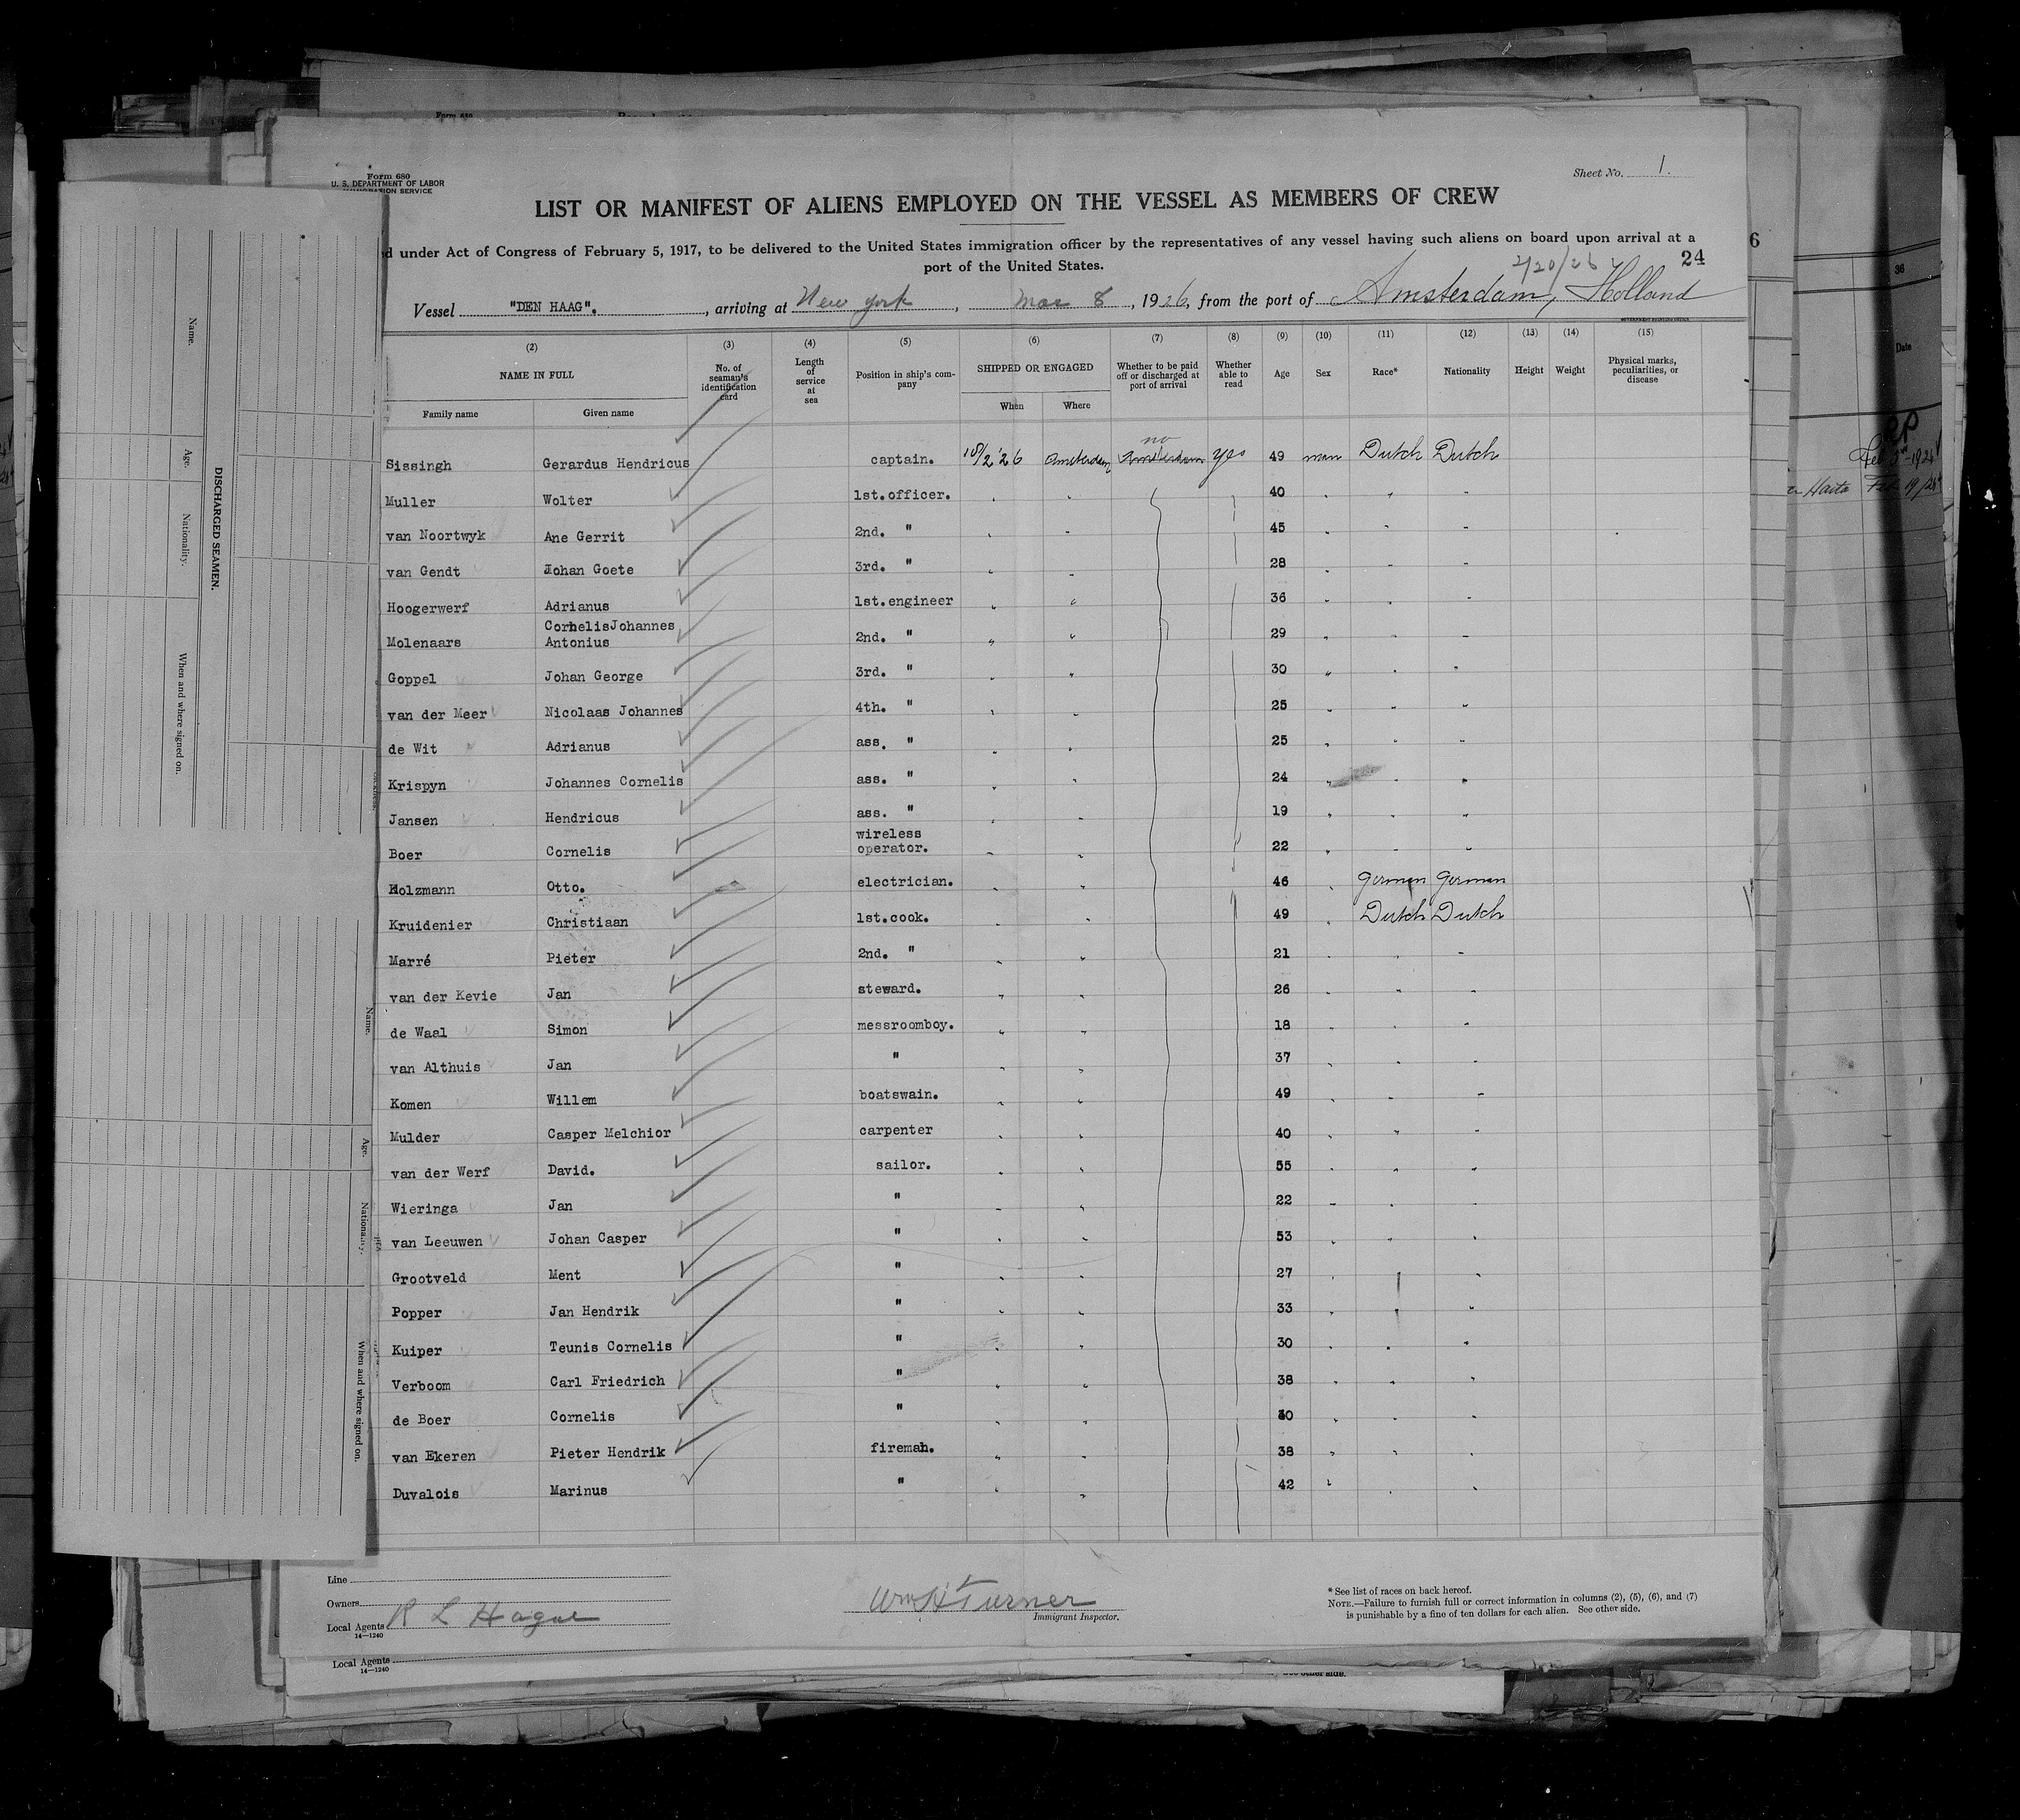 Form 680
U. S. DEPARTMENT OF LABOR
IMMIGRATION SERVICE
Sheet No. 1.
LIST OR MANIFEST OF ALIENS EMPLOYED ON THE VESSEL AS MEMBERS OF CREW
d under Act of Congress of February 5, 1917, to be delivered to the United States immigration officer by the representatives of any vessel having such aliens on board upon arrival at a
port of the United States.
24
2/20/26
Vessel "DEN HAAG". , arriving at New York , Mar 8 , 1926, from the port of Amsterdam, Holland
(2) (3) (4) (5) (6) (7) (8) (9) (10) (11) (12) (13) (14) (15)
NAME IN FULL No. of seaman's identification card Length of service at sea Position in ship's company SHIPPED OR ENGAGED Whether to be paid off or discharged at port of arrival Whether able to read Age Sex Race* Nationality Height Weight Physical marks, peculiarities, or disease
Family name Given name When Where
no
Sissingh Gerardus Hendricus captain. 18/2 '26 Amsterdam Amsterdam yes 49 man Dutch Dutch
Muller Wolter 1st.officer. 40
van Noortwyk Ane Gerrit 2nd. " 45
van Gendt Johan Goete 3rd. " 28
Hoogerwerf Adrianus 1st.engineer 36
Molenaars CornelisJohannes Antonius 2nd. " 29
Goppel Johan George 3rd. " 30
van der Meer Nicolaas Johannes 4th. " 25
de Wit Adrianus ass. " 25
Krispyn Johannes Cornelis ass. " 24
Jansen Hendricus ass. " 19
Boer Cornelis wireless operator. 22
Holzmann Otto. electrician. 46 German German
Kruidenier Christiaan 1st.cook. 49 Dutch Dutch
Marré Pieter 2nd. " 21
van der Kevie Jan steward. 26
de Waal Simon messroomboy. 18
van Althuis Jan " 37
Komen Willem boatswain. 49
Mulder Casper Melchior carpenter 40
van der Werf David. sailor. 55
Wieringa Jan " 22
van Leeuwen Johan Casper " 53
Grootveld Ment " 27
Popper Jan Hendrik " 33
Kuiper Teunis Cornelis " 30
Verboom Carl Friedrich " 38
de Boer Cornelis "
van Ekeren Pieter Hendrik fireman. 38
Duvalois Marinus " 42
Line
Owners
Local Agents R L Hague
14—1240
Wm H Turner
Immigrant Inspector.
* See list of races on back hereof.
NOTE.—Failure to furnish full or correct information in columns (2), (5), (6), and (7)
is punishable by a fine of ten dollars for each alien. See other side.
Local Agents
14—1240
See other side.
DISCHARGED SEAMEN.
Name.
Age.
Nationality.
When and where signed on.
Name.
Age.
Nationality.
When and where signed on.
6
36
Date
Feb 19/26